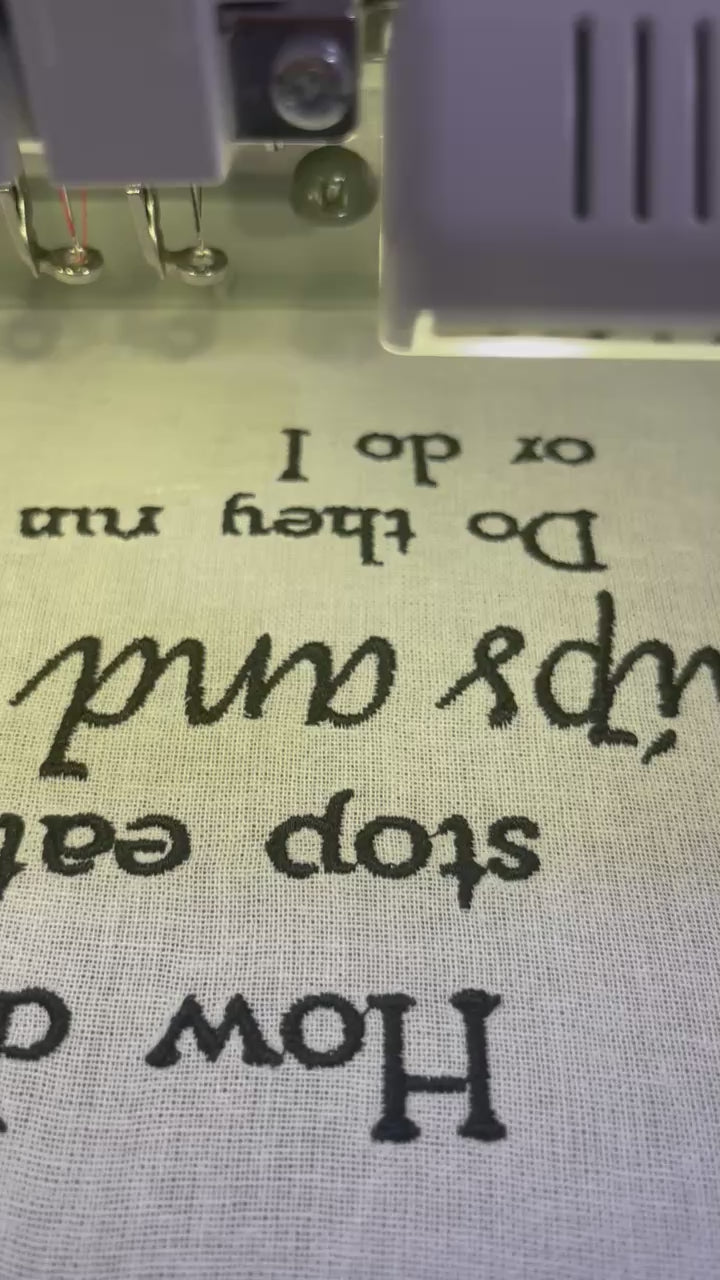 How d
stop eat
ips and
Do they run
or do I